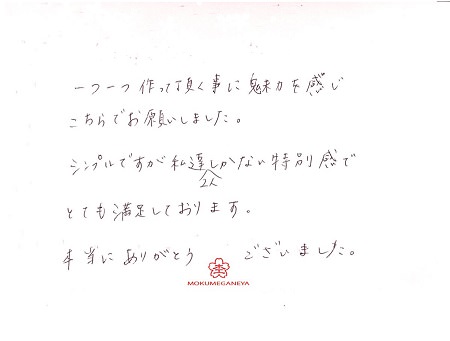 一つ一つ作って頂く事に魅力を感じ
こちらでお願いしました。
シンプルですが私達2人しかない特別感で
とても満足しております。
本当にありがとう ございました。
MOKUMEGANEYA